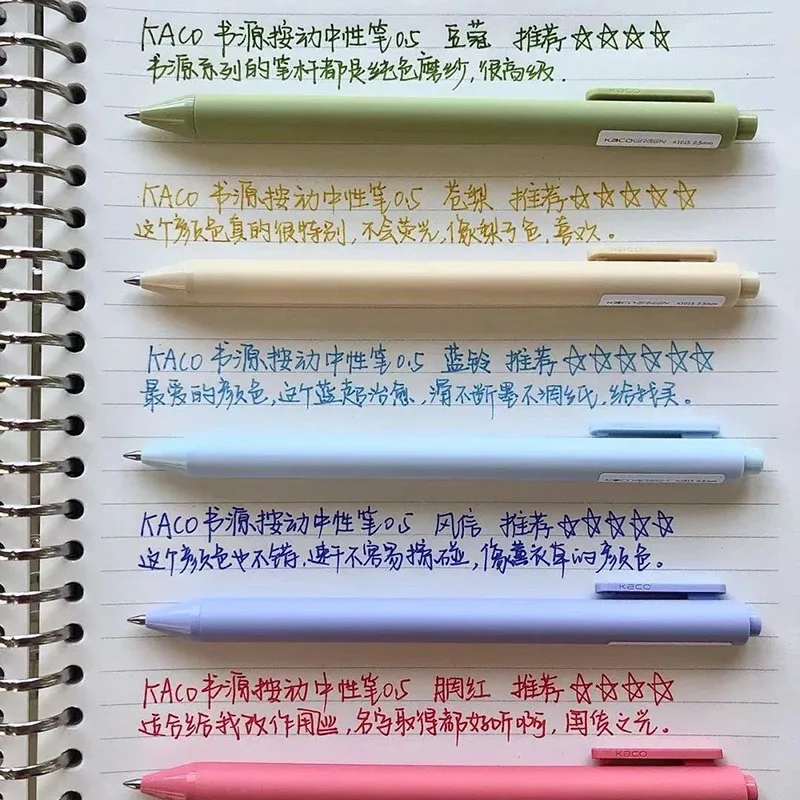 KACO 书源按动中性笔0.5 豆蔻 推荐☆☆☆☆
书源系列的笔杆都是纯色磨纱，很高级.
KACO
KACOGREEN K1015 0.5mm
KACO 书源按动中性笔0.5 苍梨 推荐☆☆☆☆☆
这个颜色真的很特别，不会荧光，像梨子色，喜欢。
KACO
KACOGREEN K1015 0.5mm
KACO 书源按动中性笔0.5 蓝铃 推荐☆☆☆☆☆☆
最爱的颜色，这个蓝超治愈，滑不断墨不洇纸，给我买。
KACO 书源按动中性笔0.5 风信 推荐☆☆☆☆☆
这个颜色也不错，速干不容易擦碰，像薰衣草的颜色。
KACO
KACO书源按动中性笔0.5 胭红 推荐☆☆☆☆
适合给我改作用业，名字取得都好听啊，国货之光。
KACO